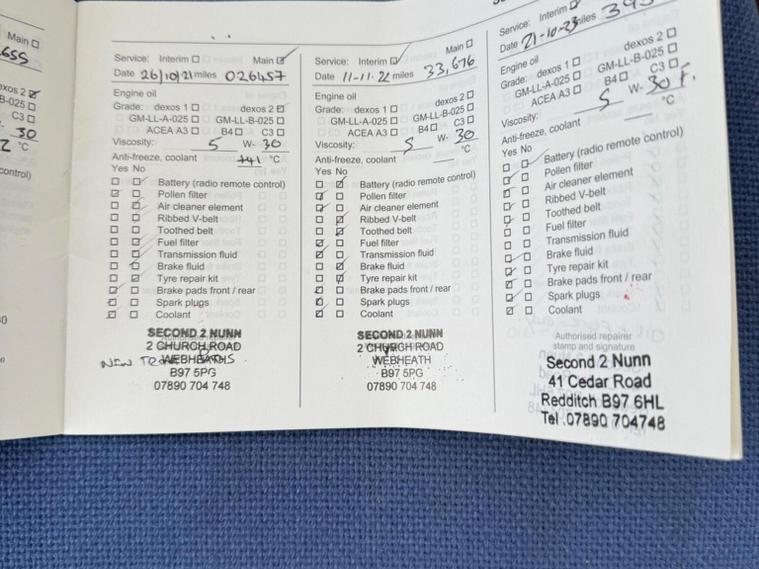 655
exos 2 ☑
B-025 ☐
C3 ☐
30
°C
control)
Service: Interim ☐ Main ☑
Date 26/10/21 miles 026457
Engine oil
Grade: dexos 1 ☐ dexos 2 ☑
GM-LL-A-025 ☐ GM-LL-B-025 ☐
ACEA A3 ☐ B4 ☐ C3 ☐
Viscosity: 5 W- 30
Anti-freeze, coolant +41 °C
Yes No
Battery (radio remote control)
Pollen filter
Air cleaner element
Ribbed V-belt
Toothed belt
Fuel filter
Transmission fluid
Brake fluid
Tyre repair kit
Brake pads front / rear
Spark plugs
Coolant
SECOND 2 NUNN
2 CHURCH ROAD
WEBHEATH
B97 5PG
07890 704 748
Service: Interim ☑ Main ☐
Date 11-11-22 miles 33,676
Engine oil
Grade: dexos 1 ☐ dexos 2 ☑
GM-LL-A-025 ☐ GM-LL-B-025 ☐
ACEA A3 ☐ B4 ☐ C3 ☐
Viscosity: 5 W- 30
Anti-freeze, coolant °C
Yes No
Battery (radio remote control)
Pollen filter
Air cleaner element
Ribbed V-belt
Toothed belt
Fuel filter
Transmission fluid
Brake fluid
Tyre repair kit
Brake pads front / rear
Spark plugs
Coolant
SECOND 2 NUNN
2 CHURCH ROAD
WEBHEATH
B97 5PG
07890 704 748
Service: Interim ☑
Date 21-10-23 miles
Engine oil
Grade: dexos 1 ☐ dexos 2 ☐
GM-LL-A-025 ☐ GM-LL-B-025 ☐
ACEA A3 ☐ B4 ☐ C3 ☐
Viscosity: 5 W- 30
Anti-freeze, coolant °C
Yes No
Battery (radio remote control)
Pollen filter
Air cleaner element
Ribbed V-belt
Toothed belt
Fuel filter
Transmission fluid
Brake fluid
Tyre repair kit
Brake pads front / rear
Spark plugs
Coolant
Authorised repairer
stamp and signature
Second 2 Nunn
41 Cedar Road
Redditch B97 6HL
Tel :07890 704748